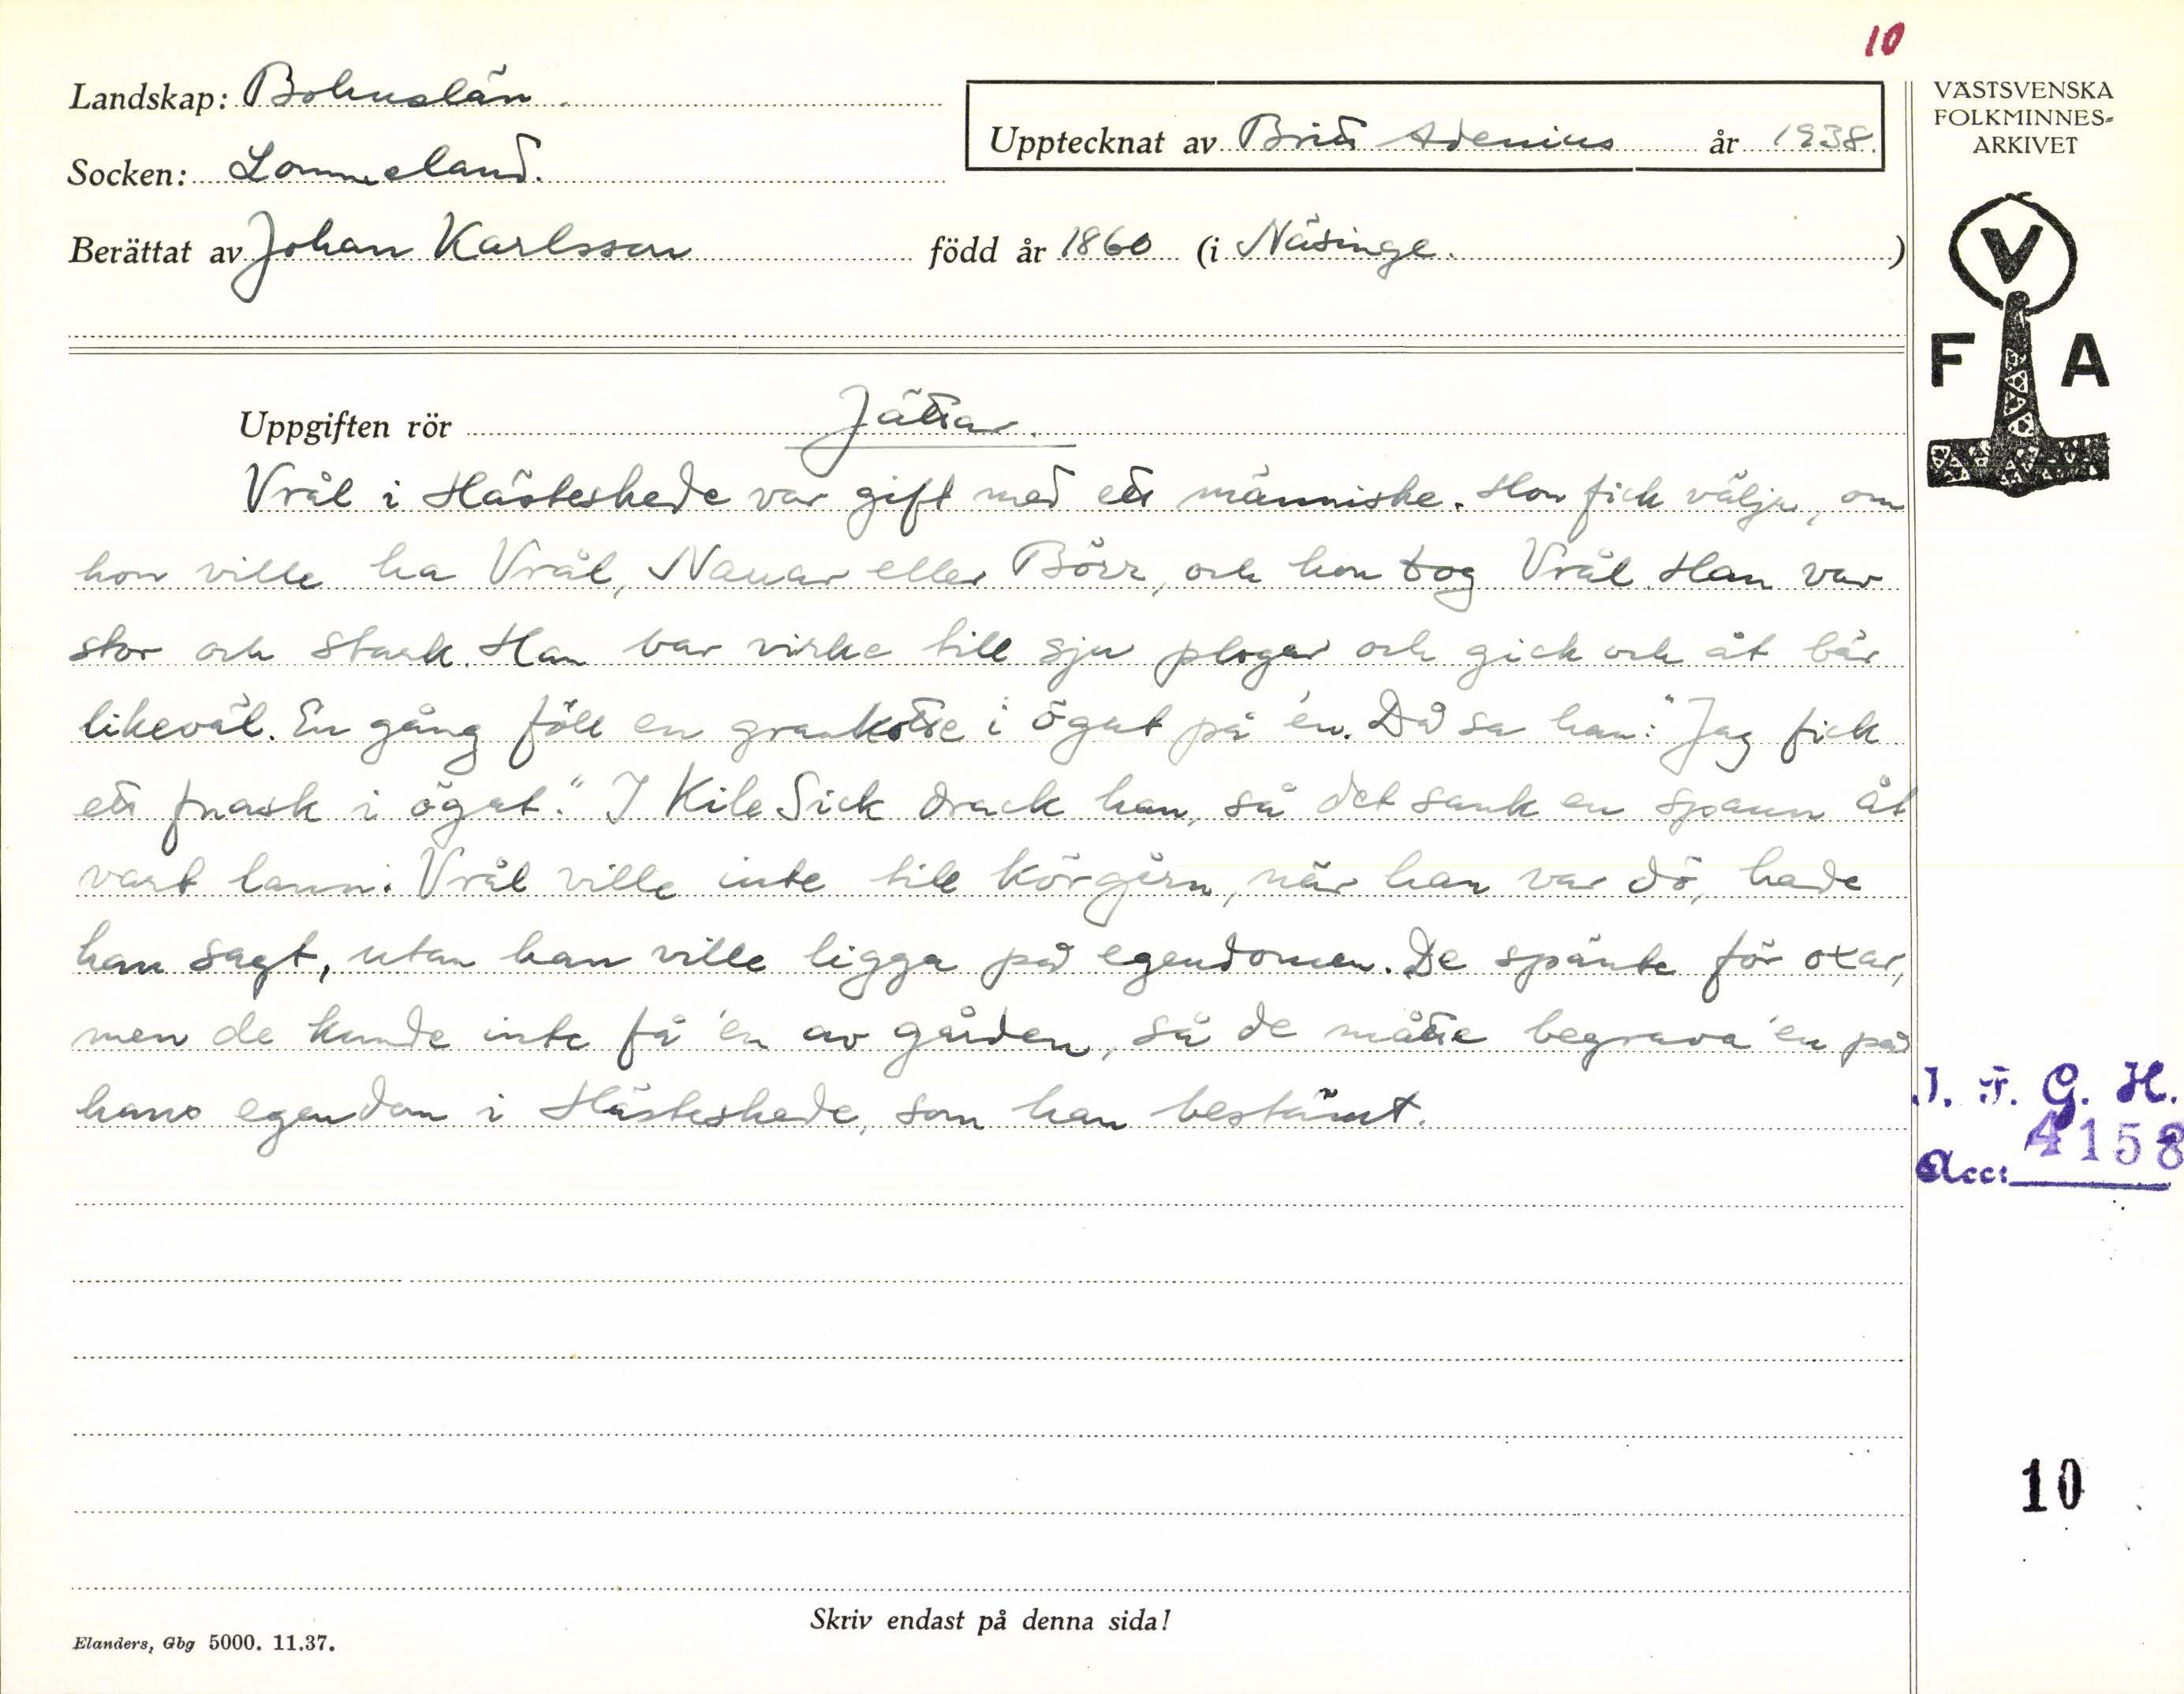 10
Landskap: Bohuslän.
Upptecknat av Britt Adenius år 1938.
VÄSTSVENSKA
FOLKMINNES-
ARKIVET
Socken: Lommeland.
Berättat av Johan Karlsson född år 1860 (i Näsinge.)
V
F A
Uppgiften rör Jättar.
Vrål i Hästeskede var gift med ett människe. Hon fick välja, om
hon ville ha Vrål, Nauar eller Börr, och hon tog Vrål. Han var
stor och stark. Han bar virke till sju plogar och gick och åt bär
likeväl. En gång föll en grankotte i ögat på 'en. Då sa han: "Jag fick
ett fnask i ögat." I Kile Sick drack han, så det sank en spann åt
vart lann. Vrål ville inte till körgårn, när han var dö, hade
han sagt, utan han ville ligga på egendomen. De spänte för oxar,
men de kunde inte få 'en av gården, så de måtte begrava 'en på
hans egendom i Hästeskede, som han bestämt.
I. F. G. H.
Acc: 4158
10
Skriv endast på denna sida!
Elanders, Gbg 5000. 11.37.